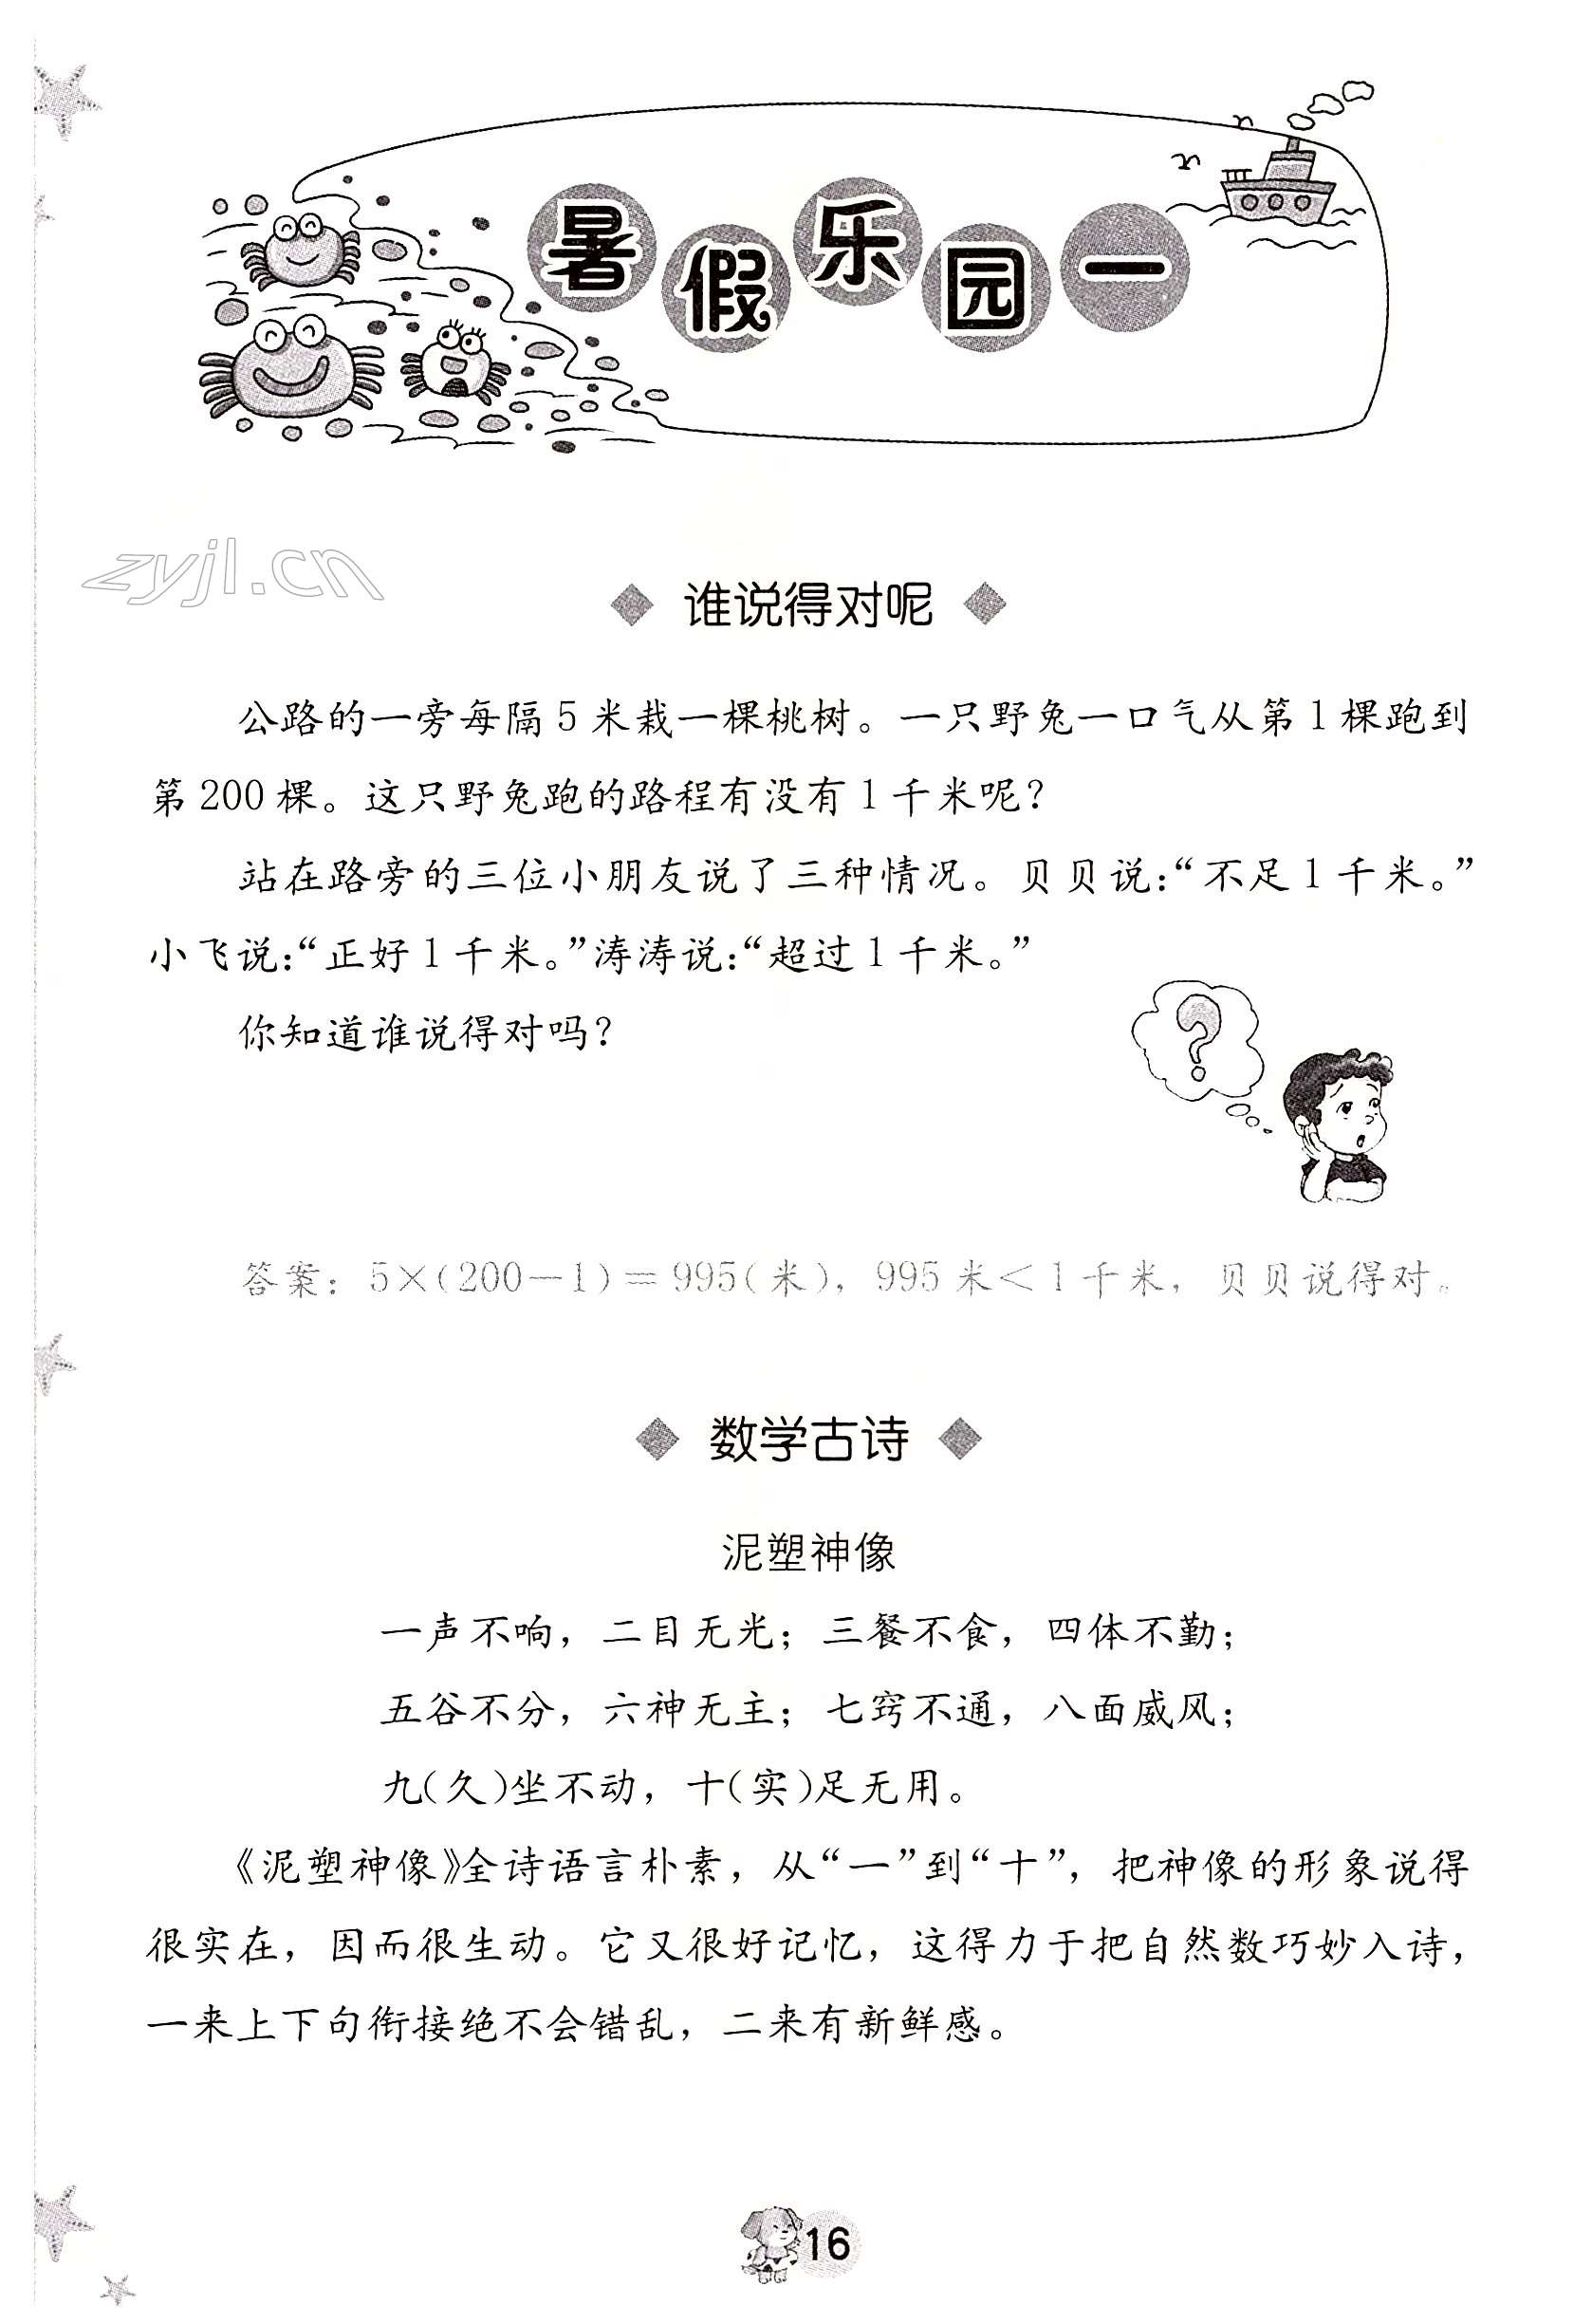 暑假乐园一
zyjl.cn
谁说得对呢
公路的一旁每隔5米栽一棵桃树。一只野兔一口气从第1棵跑到
第200棵。这只野兔跑的路程有没有1千米呢？
站在路旁的三位小朋友说了三种情况。贝贝说：“不足1千米。”
小飞说：“正好1千米。”涛涛说：“超过1千米。”
你知道谁说得对吗？
?
答案：5×(200－1)＝995(米)，995米＜1千米，贝贝说得对。
数学古诗
泥塑神像
一声不响，二目无光；三餐不食，四体不勤；
五谷不分，六神无主；七窍不通，八面威风；
九(久)坐不动，十(实)足无用。
《泥塑神像》全诗语言朴素，从“一”到“十”，把神像的形象说得
很实在，因而很生动。它又很好记忆，这得力于把自然数巧妙入诗，
一来上下句衔接绝不会错乱，二来有新鲜感。
16